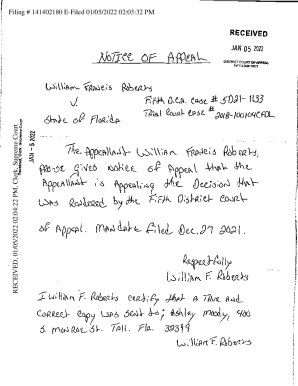 Filing # 141402180 E-Filed 01/05/2022 02:03:32 PM
RECEIVED
JAN 05 2022
DISTRICT COURT OF APPEAL
FIFTH DISTRICT
NOTICE OF APPEAL
William Francis Roberts
V.
State of Florida
Fifth D.C.A. Case # 5D21-1133
Trial Court Case #
JAN - 5 2022
RECEIVED, 01/05/2022 02:04:22 PM, Clerk, Supreme Court
The Appellant William Francis Roberts,
gives notice of Appeal that the
Appellant is Appealing the Decision that
was rendered by the Fifth District Court
of Appeal. Mandate filed Dec. 27 2021.
Respectfully
William F. Roberts
I William F. Roberts certify that a True and
correct copy was sent to; Ashley Moody, 400
S Monroe St. Tall. Fla. 32399
William F. Roberts